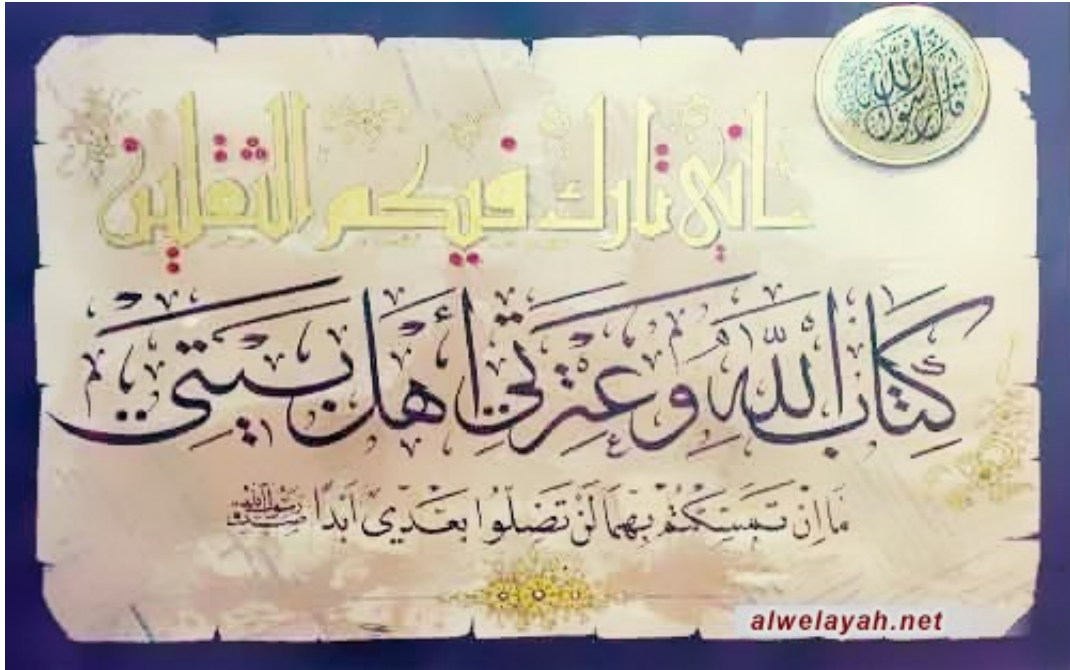 قال رسول الله
إني تارك فيكم الثقلين
كِتَابَ اللهِ وَعِتْرَتِي أَهْلَ بَيْتِي
مَا اِنْ تَمَسَّكْتُمْ بِهِمَا لَنْ تَضِلُّوا بَعْدِي اَبَدًا
رسول الله
alwelayah.net